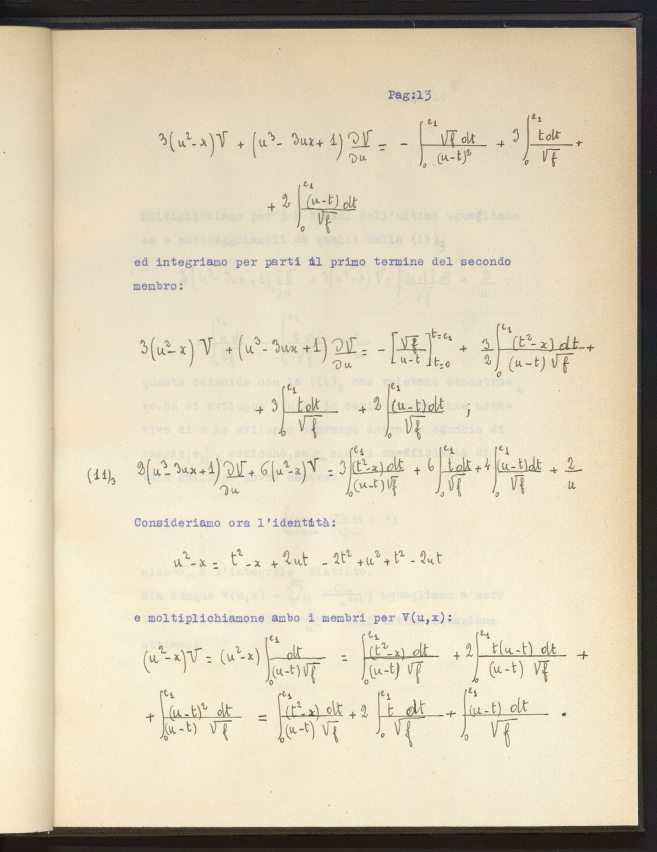 Pag:13
3(u²-x)V + (u³- 3ux+1) ∂V/∂u = - ∫₀^e₁ √f dt/(u-t)² + 3 ∫₀^e₁ t dt/√f +
+ 2 ∫₀^e₁ (u-t) dt/√f
ed integriamo per parti il primo termine del secondo
membro:
3(u²-x) V + (u³- 3ux+1) ∂V/∂u = - [√f/(u-t)]_{t=0}^{t=e₁} + 3/2 ∫₀^e₁ (t²-x) dt/(u-t)√f +
+ 3 ∫₀^e₁ t dt/√f + 2 ∫₀^e₁ (u-t) dt/√f ;
(11)₃ 2(u³-3ux+1) ∂V/∂u + 6(u²-x)V = 3 ∫₀^e₁ (t²-x) dt/(u-t)√f + 6 ∫₀^e₁ t dt/√f + 4 ∫₀^e₁ (u-t) dt/√f + 2/u
Consideriamo ora l'identità:
u²-x = t²-x + 2ut - 2t² + u² + t² - 2ut
e moltiplichiamone ambo i membri per V(u,x):
(u²-x)V = (u²-x) ∫₀^e₁ dt/(u-t)√f = ∫₀^e₁ (t²-x) dt/(u-t)√f + 2 ∫₀^e₁ t(u-t) dt/(u-t)√f +
+ ∫₀^e₁ (u-t)² dt/(u-t)√f = ∫₀^e₁ (t²-x) dt/(u-t)√f + 2 ∫₀^e₁ t dt/√f + ∫₀^e₁ (u-t) dt/√f .